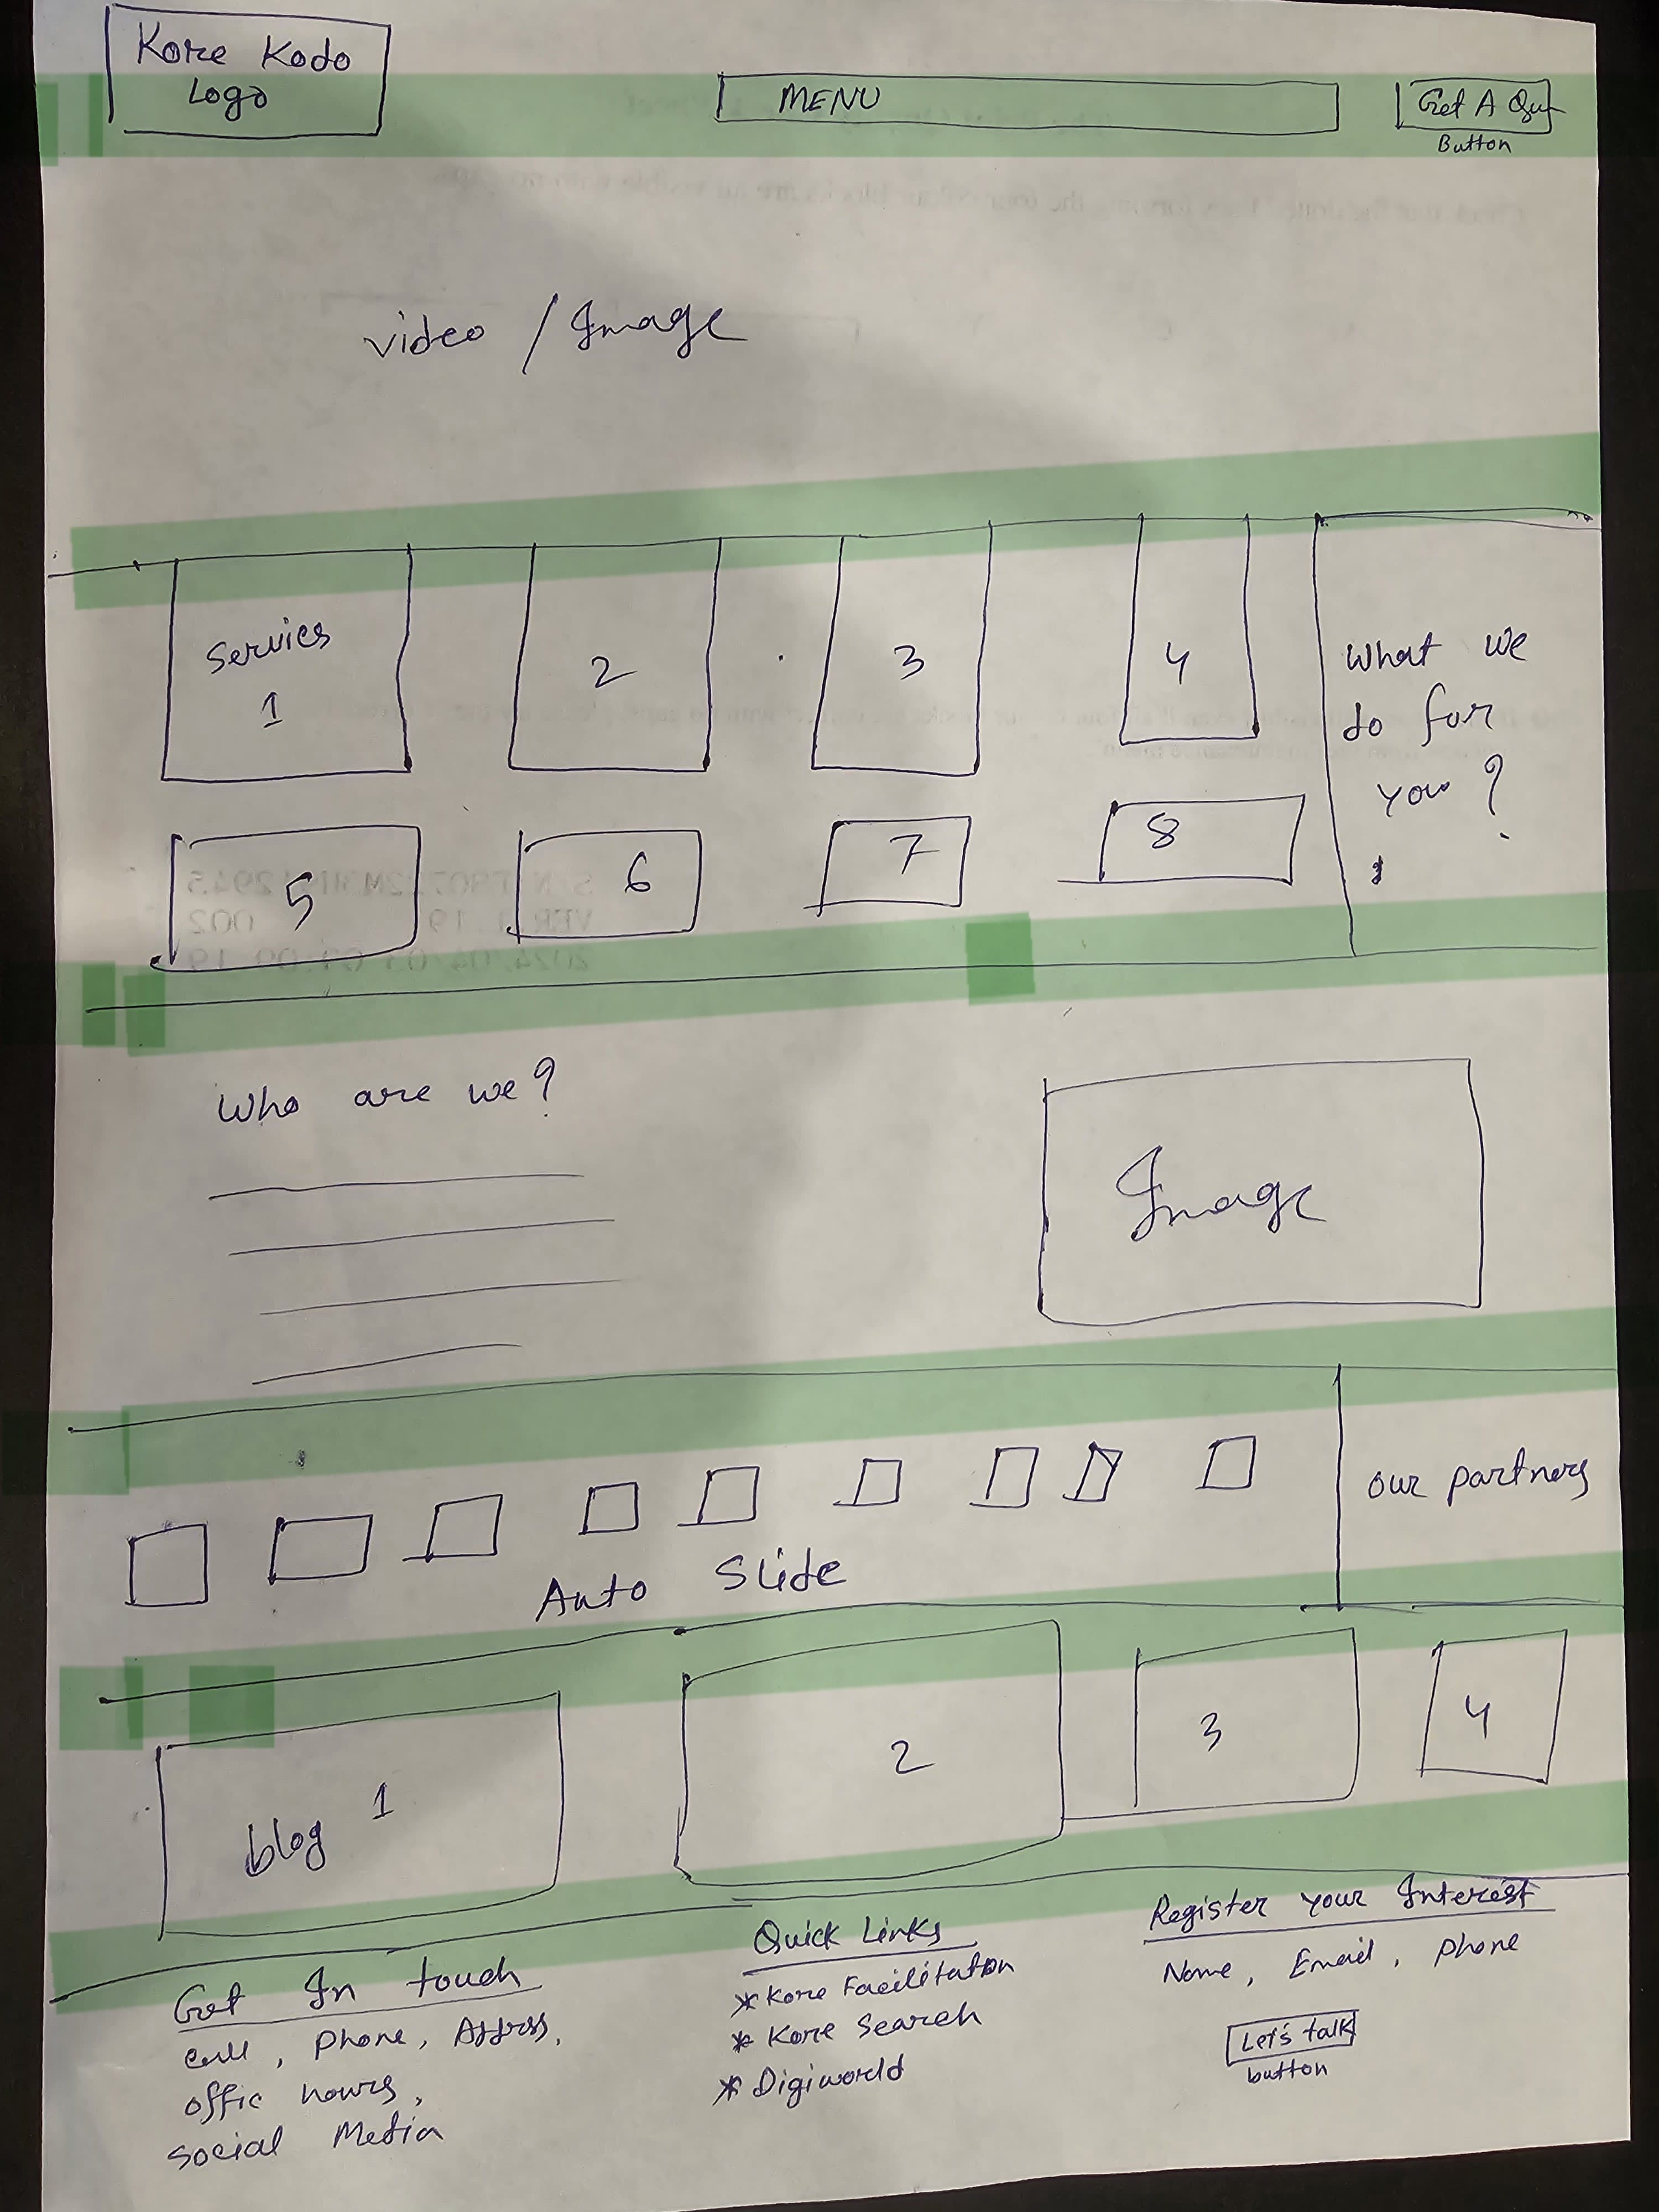 Kore Kodo
Logo
MENU
Get A Qu
Button
video / Image
Servics
1
2
3
4
What we
do for
you?
5
6
7
8
Who are we?
Image
our partners
Auto Slide
blog 1
2
3
4
Get In touch
Call, Phone, Address,
offic hours,
Social Media
Quick Links
* Kore Facilitation
* Kore Search
* Digiworld
Register your Interest
Name, Email, phone
Let's talk
button